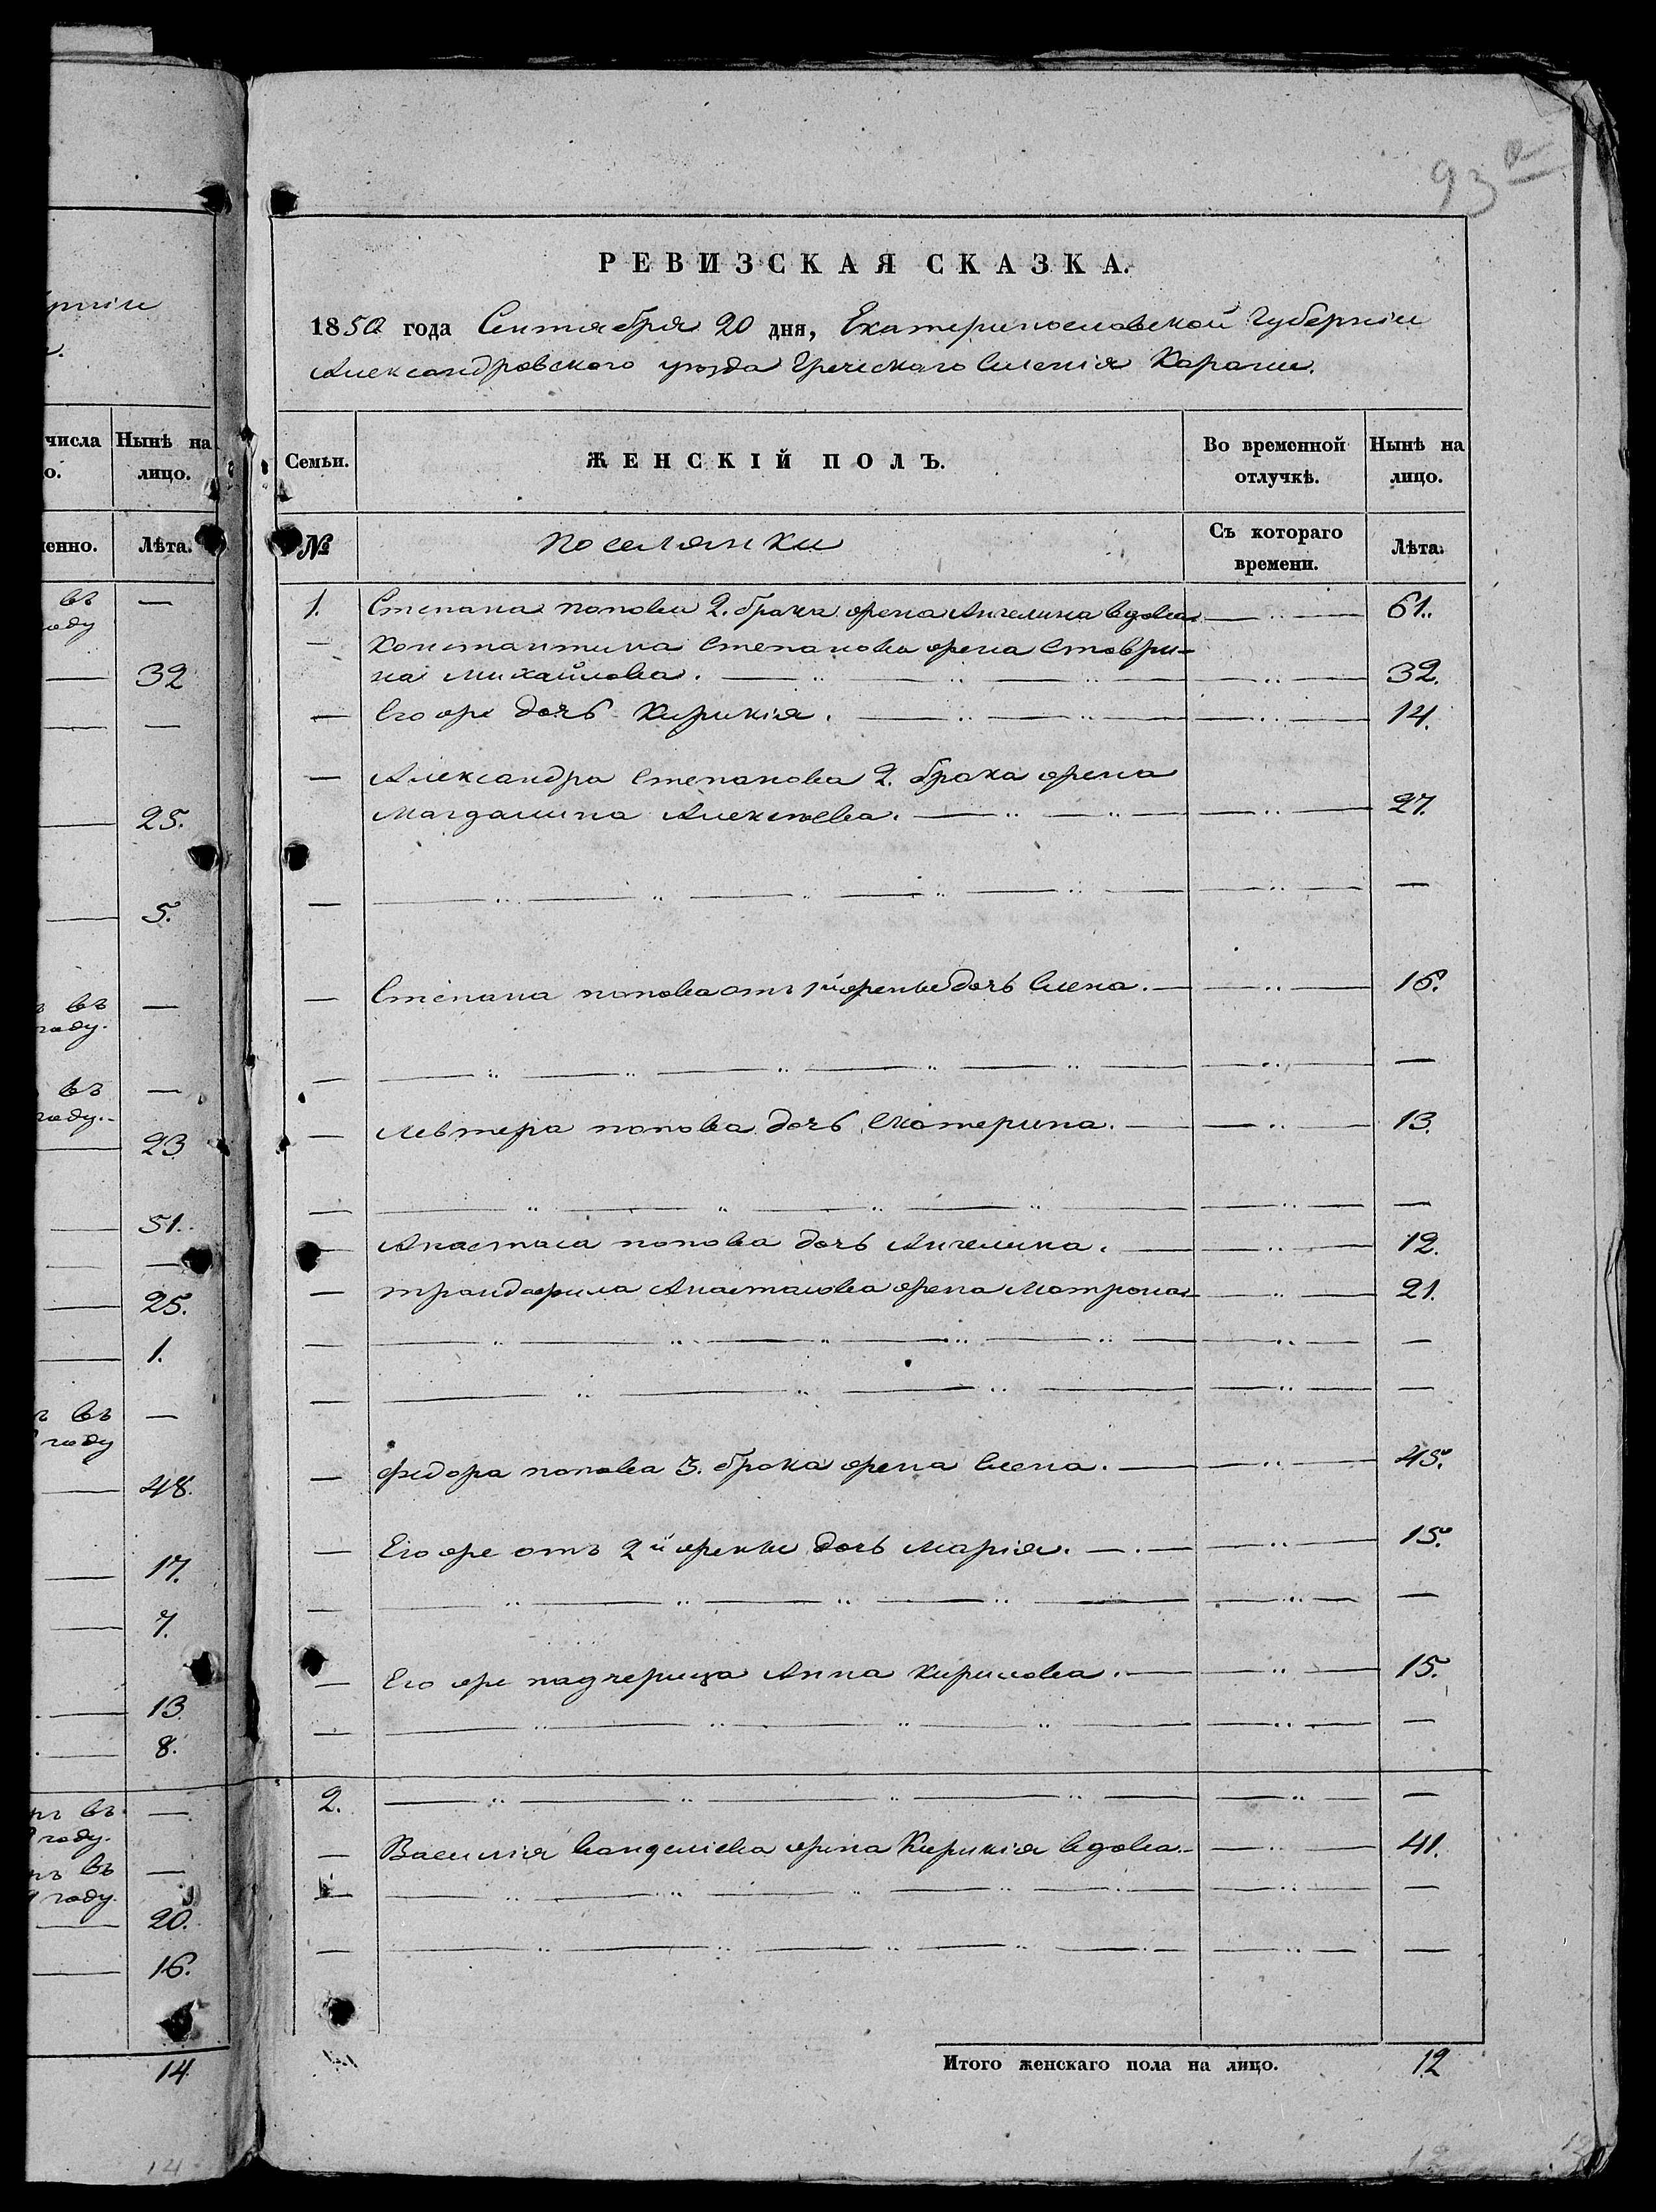 93 а
РЕВИЗСКАЯ СКАЗКА.
1850 года Сентября 20 дня, Екатеринославской Губерніи
Александровского уѣзда Греческаго Селенія Карани.
числа
о.
Нынѣ на
лицо.
Семьи.
ЖЕНСКІЙ ПОЛЪ.
Во временной
отлучкѣ.
Нынѣ на
лицо.
енно.
Лѣта.
№
поселянки
Съ котораго
времени.
Лѣта.
1. Степана попова 2. брака жена Ангелина вдова — „ — 61.
— Константина Степанова жена Ставри-
на Михайлова. — „ — 32.
— Его же дочь Кирикія. — „ — 14.
— Александра Степанова 2. брака жена
Магдалина Алексѣева. — „ — 27.
— — „ — —
— Степана попова отъ 1й жены дочь Елена. — „ — 16.
— — „ — —
— Левтера попова дочь Екатерина. — „ — 13.
— — „ — —
— Анастаса попова дочь Ангелина. — „ — 12.
— трандафила Анастасова жена Матрона — „ — 21.
— — „ — —
— — „ — —
— Федора попова 3. брака жена Елена. — „ — 45.
— Его же отъ 2й жены дочь Марія. — „ — 15.
— — „ — —
— Его же падчерица Анна Кирилова. — „ — 15.
— — „ — —
2. — „ — —
— Василія жена Кирикія вдова. — „ — 41.
— — „ — —
— — „ — —
Итого женскаго пола на лицо. 12
въ
оду
—
32
—
25.
5.
въ
году.
—
въ
году.
—
23
51.
—
25.
1.
въ
году
—
48.
17.
7.
13.
8.
въ
году.
—
въ
году.
—
20.
16.
14
14